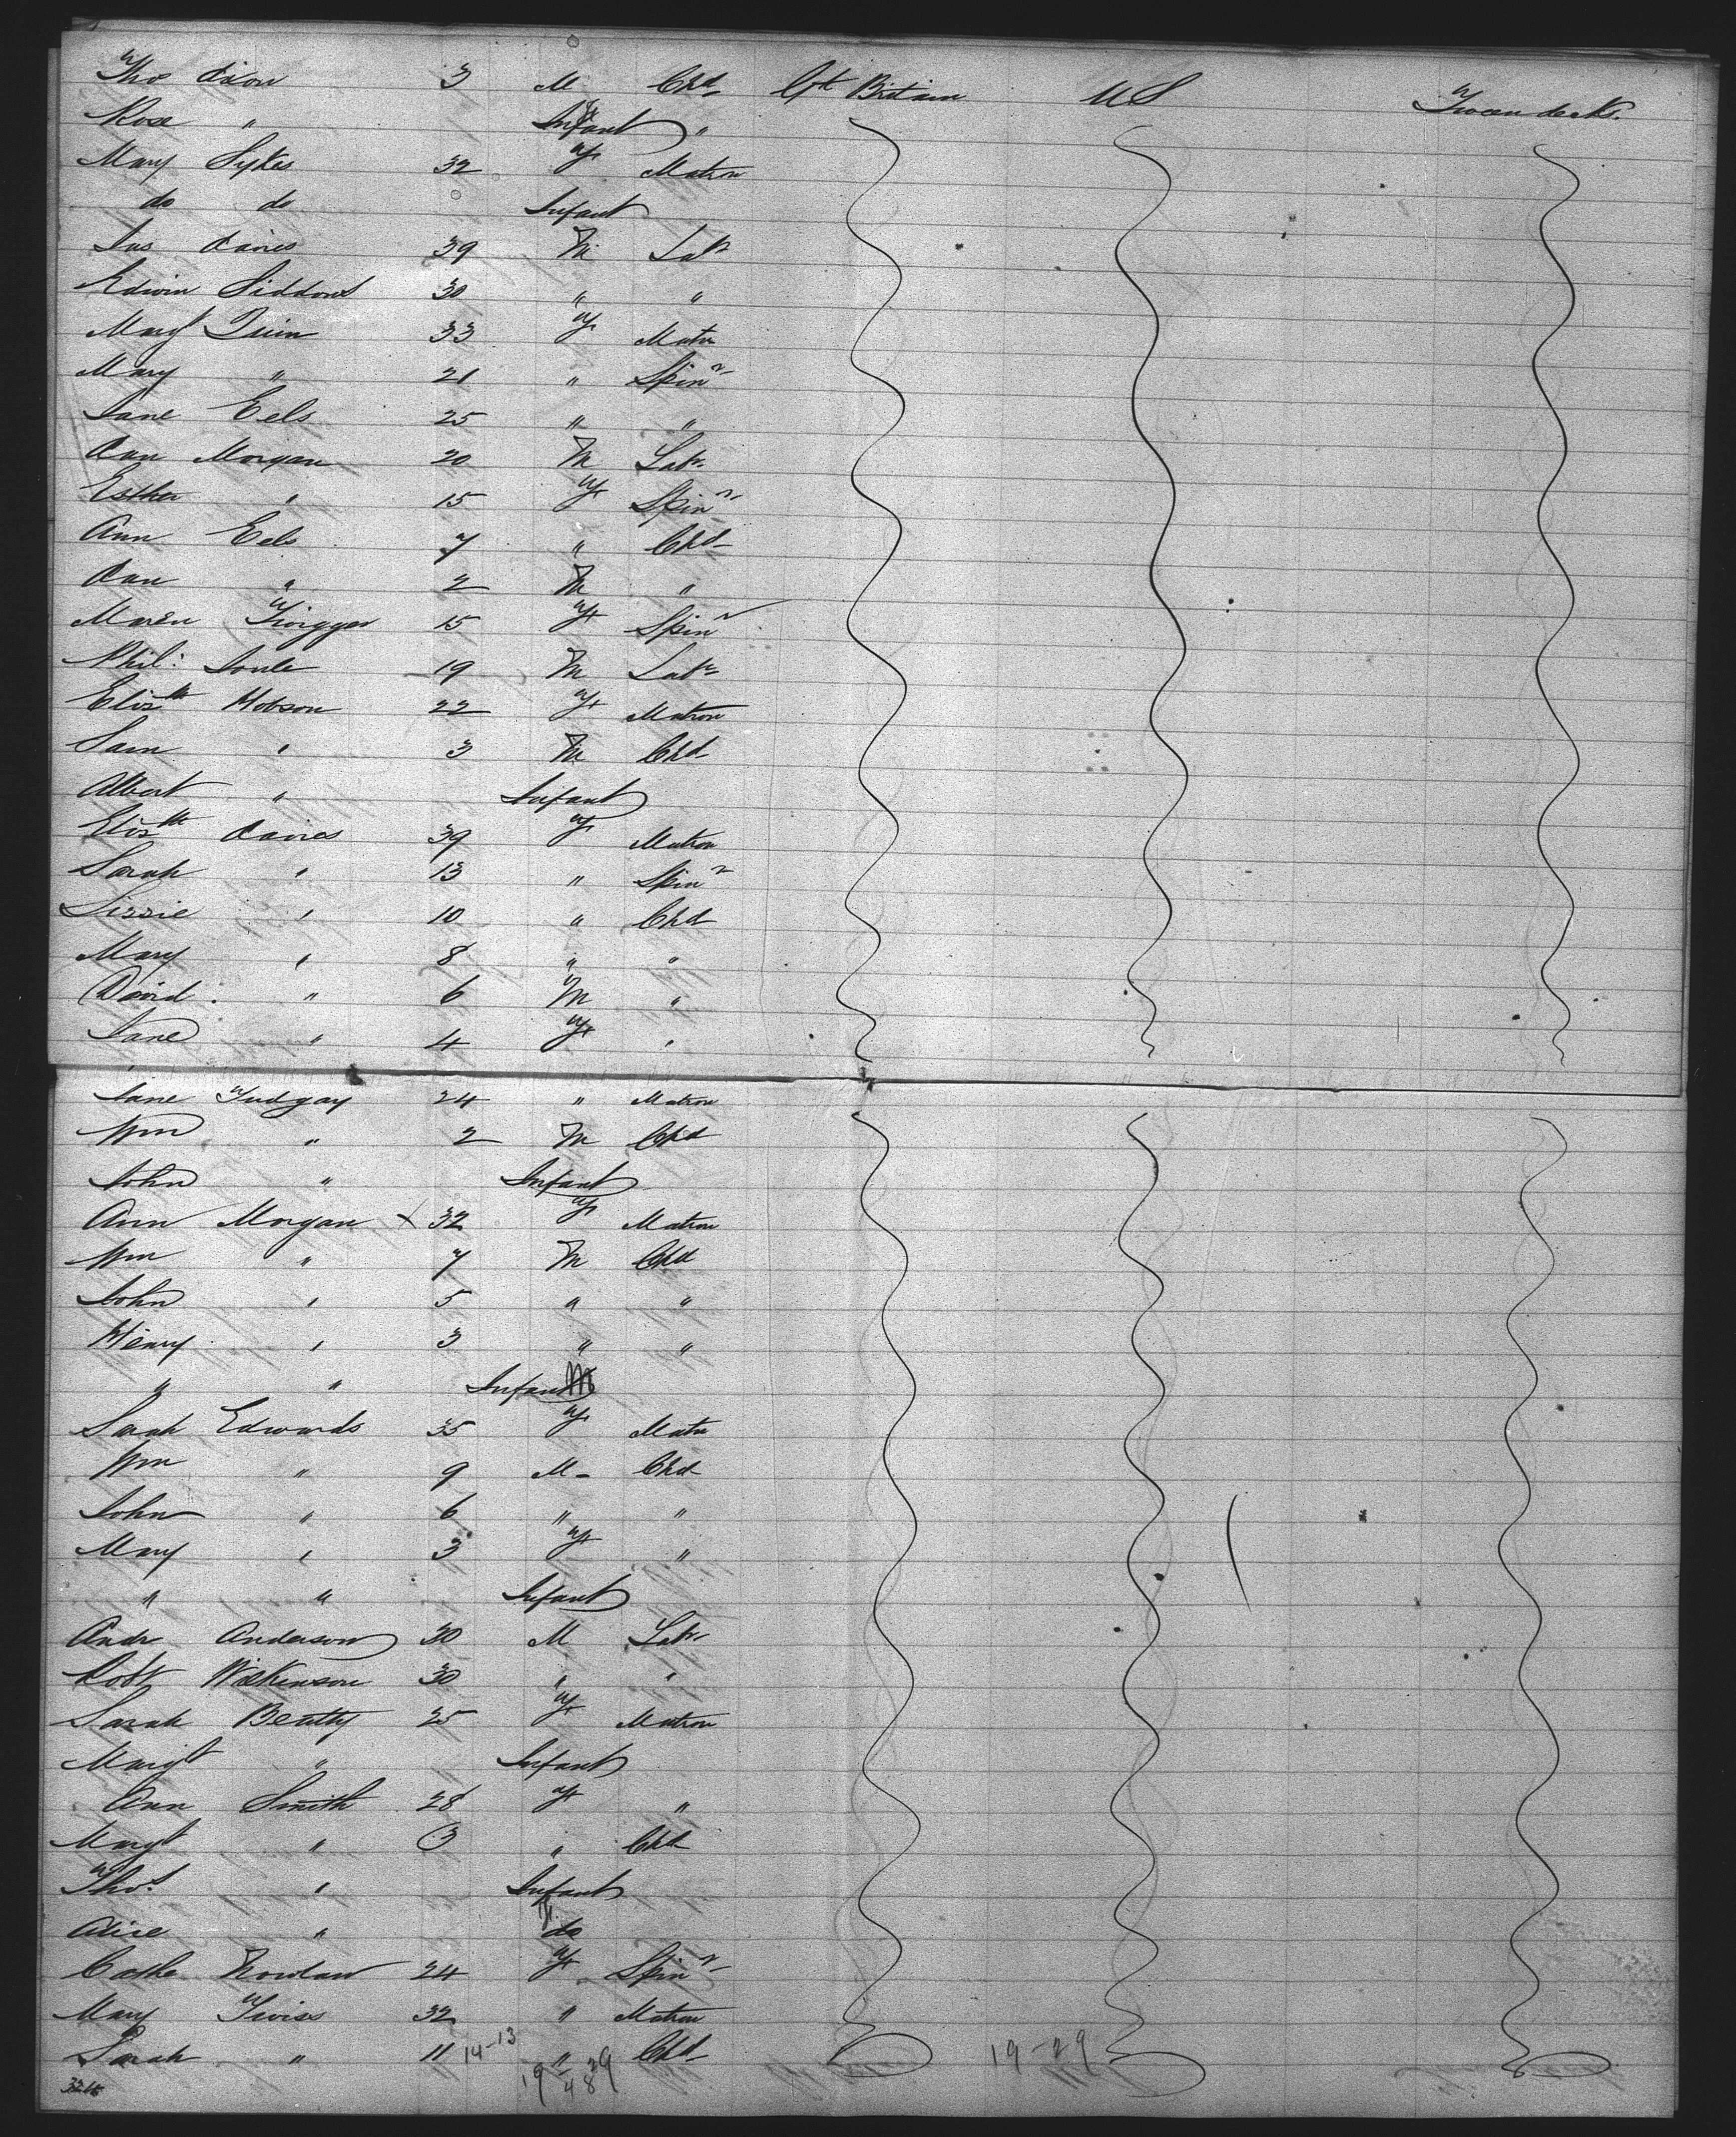 Thos Dixon 3 M Chd Gt Britain US Tween decks.
Rose " Infant "
Mary Sykes 32 F Matron
do do Infant
Jas Davies 39 M Labr
Edwin Siddons 30 " "
Margt Quin 33 F Matn
Mary " 21 " Spinr
Jane Eels 25 " "
Dan Morgan 20 M Labr
Esther " 15 F Spinr
Ann Eels 7 " Chd
Dan " 2 M "
15 F Spinr
Phil: Soule 19 M Labr
Elizth Hobson 22 F Matron
Sam " 3 M Chd
Albert " Infant
Elizth Davies 39 F Matron
Sarah " 13 " Spinr
Lizzie " 10 " Chd
Mary " 8 " "
David " 6 M "
Jane " 4 F "
Jane Tudgay 24 " Matron
Wm " 2 M Chd
John " Infant
Ann Morgan x 32 F Matron
Wm " 7 M Chd
John " 5 " "
Henry " 3 " "
" " Infant M
Sarah Edwards 35 F Matn
Wm " 9 M - Chd
John " 6 " "
Mary " 3 F "
" " Infant
Andr Anderson 30 M Labr
Robt Wilkinson 30 " "
Sarah Beatty 25 F Matron
Margt " Infant
Ann Smith 28 F "
Margt " 3 " Chd
Thos. " Infant
Alice " do
Cathe 24 F Spinr
Mary Twiss 32 " Matron
Sarah " 11 " Chd
14-13 19-29
19 29
48